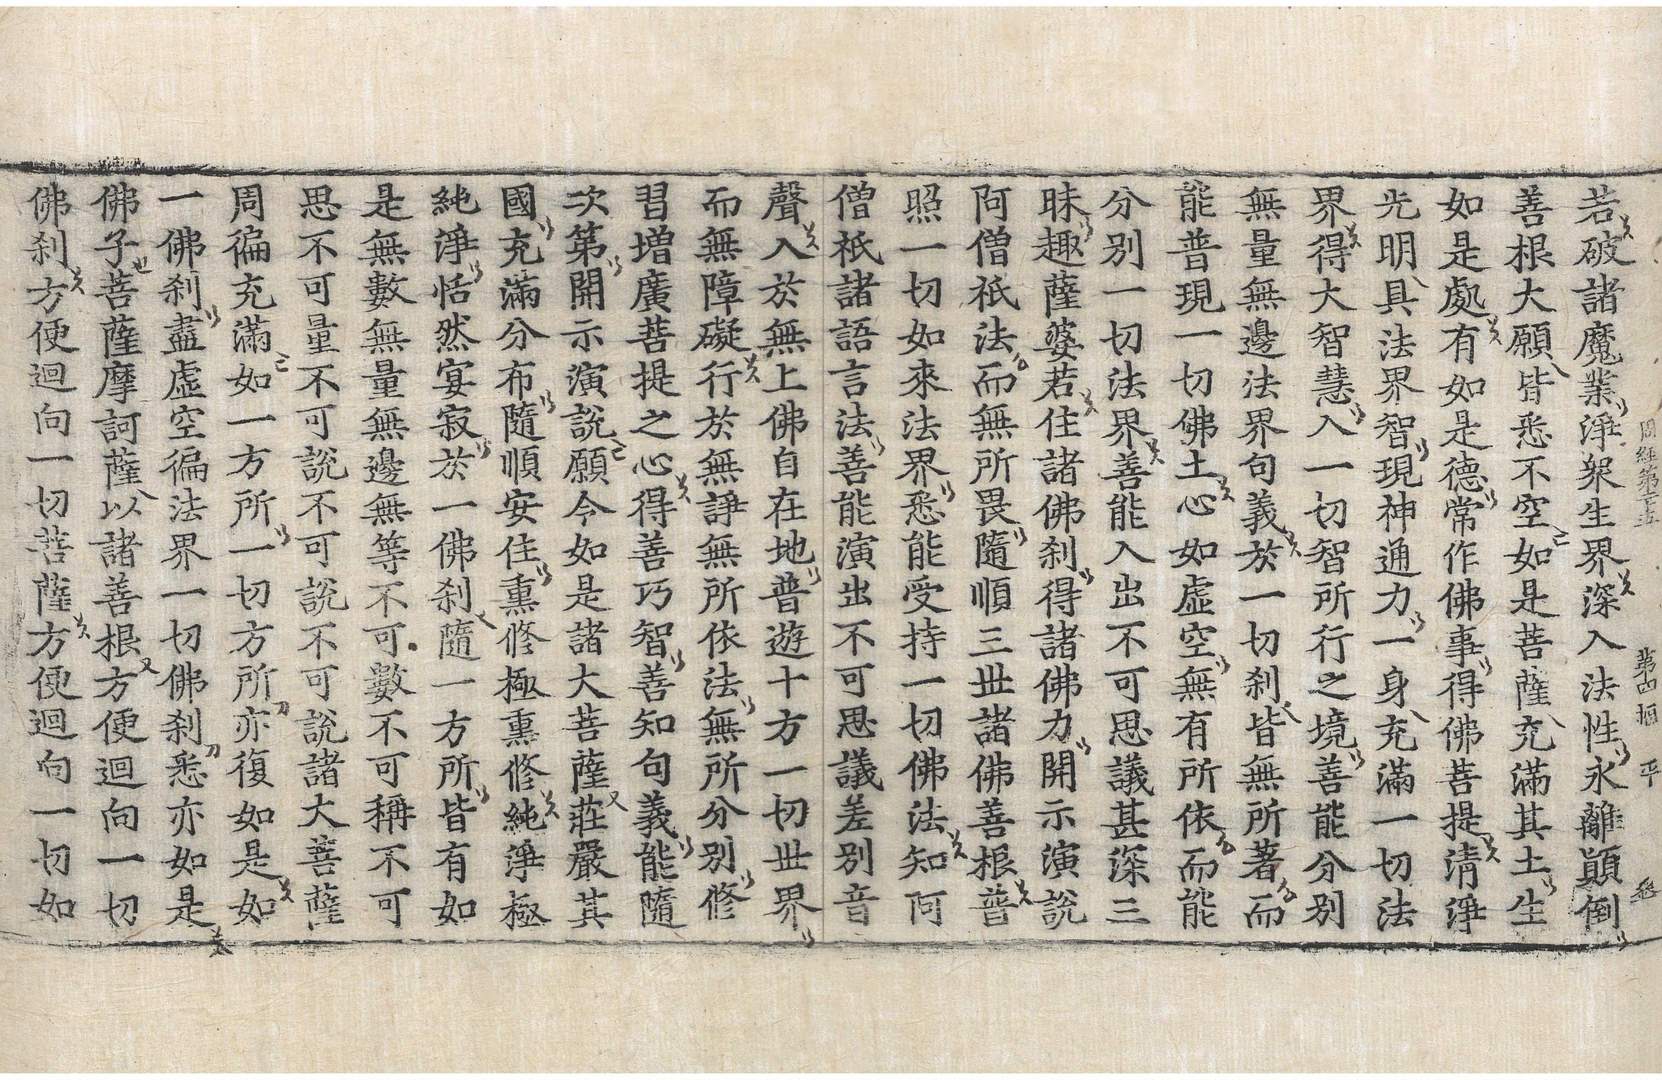 周經第三十五　第四幅　平
若破諸魔業淨衆生界深入法性永離顚倒
善根大願皆悉不空如是菩薩充滿其土生
如是處有如是德常作佛事得佛菩提清淨
光明具法界智現神通力一身充滿一切法
界得大智慧入一切智所行之境善能分別
無量無邊法界句義於一切刹皆無所著而
能普現一切佛土心如虛空無有所依而能
分別一切法界善能入出不可思議甚深三
昧趣薩婆若住諸佛刹得諸佛力開示演說
阿僧祇法而無所畏隨順三世諸佛善根普
照一切如來法界悉能受持一切佛法知阿
僧祇諸語言法善能演出不可思議差別音
聲入於無上佛自在地普遊十方一切世界
而無障礙行於無諍無所依法無所分別修
習增廣菩提之心得善巧智善知句義能隨
次第開示演說願令如是諸大菩薩莊嚴其
國充滿分布隨順安住熏修極熏修純淨極
純淨恬然宴寂於一佛刹隨一方所皆有如
是無數無量無邊無等不可數不可稱不可
思不可量不可說不可說不可說諸大菩薩
周徧充滿如一方所一切方所亦復如是如
一佛刹盡虛空徧法界一切佛刹悉亦如是
佛子菩薩摩訶薩以諸善根方便迴向一切
佛刹方便迴向一切菩薩方便迴向一切如